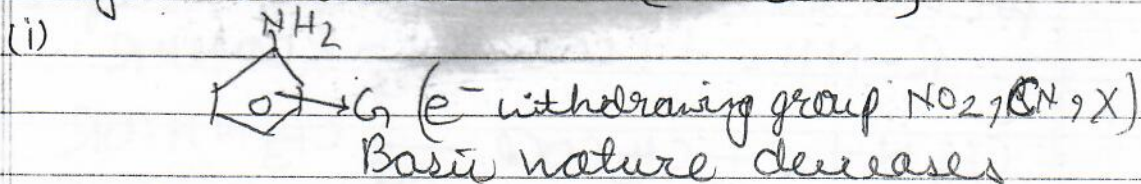 (i)
NH2
G (e⁻ withdrawing group NO2, CN, X)
Basic nature decreases